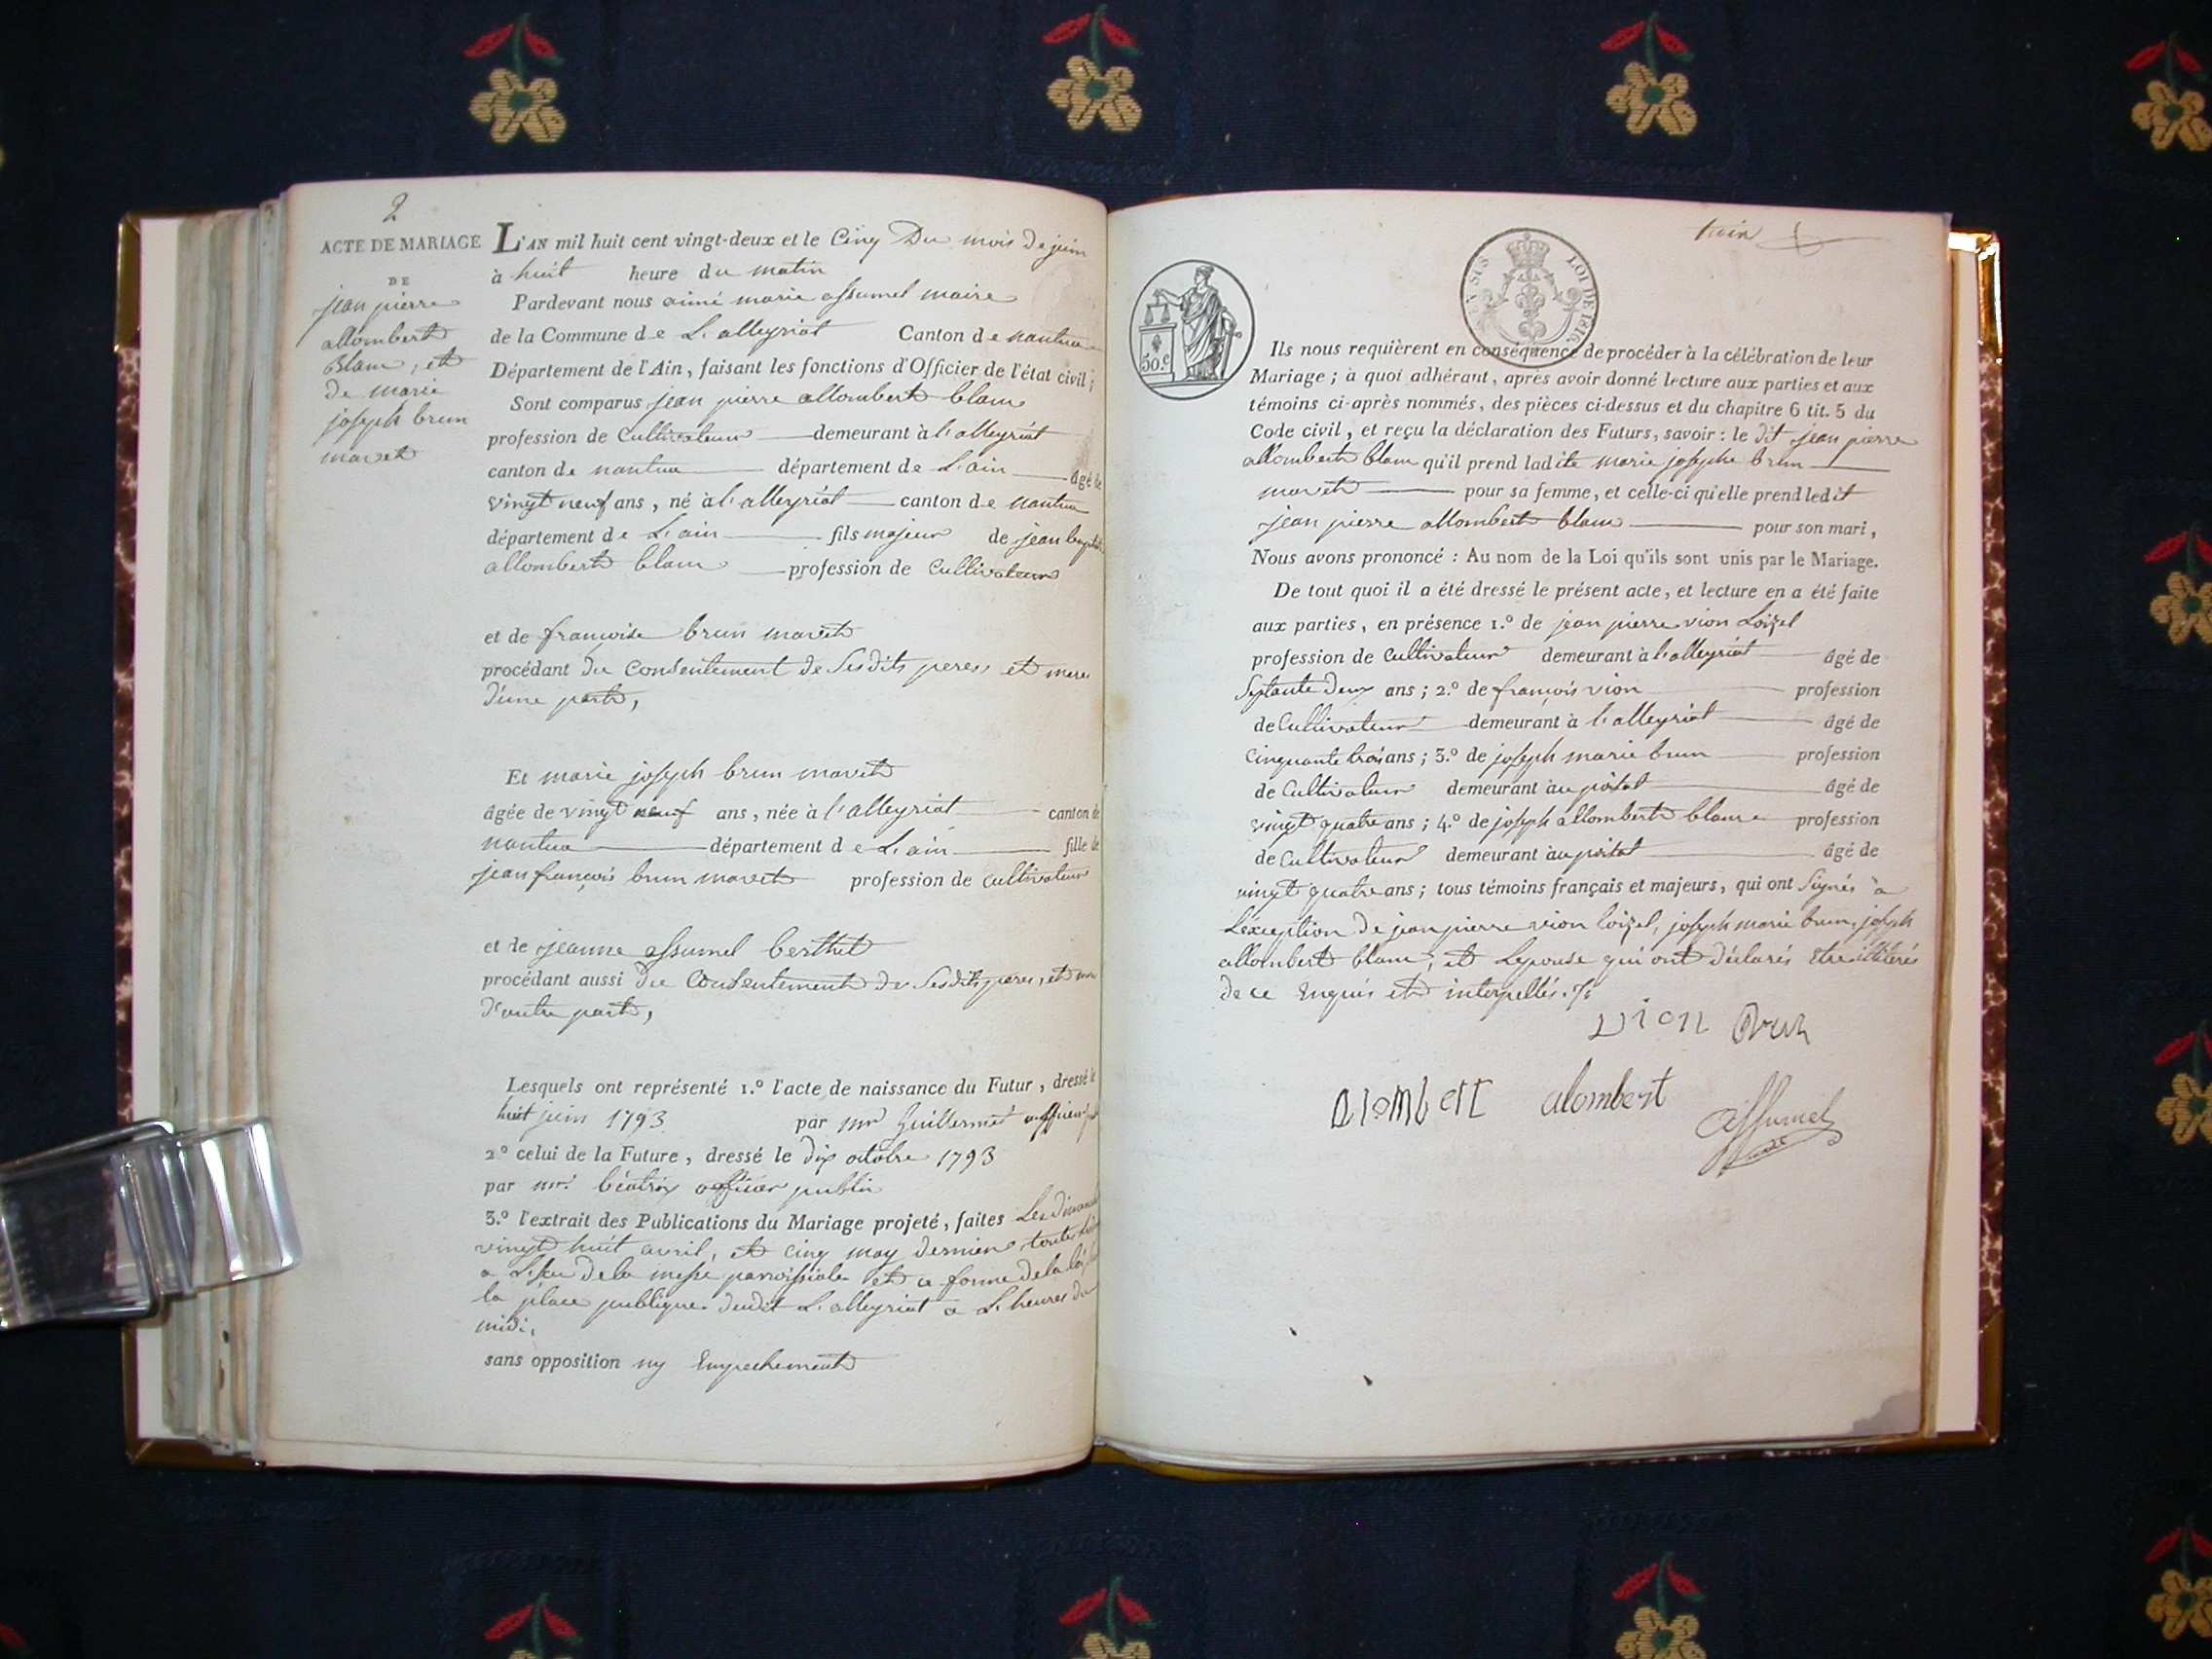 2
ACTE DE MARIAGE
DE
jean pierre
allombert
Blanc, et
de marie
joseph brun
mavet
L'AN mil huit cent vingt-deux et le Cinq Du mois de juin
à huit heure du matin
Pardevant nous aimé marie assumel maire
de la Commune de L'alleyriat Canton de nantua
Département de l'Ain, faisant les fonctions d'Officier de l'état civil;
Sont comparus jean pierre allombert blanc
profession de Cultivateur demeurant à l'alleyriat
canton de nantua département de L'ain âgé de
vingt neuf ans, né à l'alleyriat canton de nantua
département de L'ain fils majeur de jean
allombert blanc profession de Cultivateur
et de françoise brun mavet
procédant du Consentement de Sesdits peres et mere
d'une part,
Et marie joseph brun mavet
âgée de vingt neuf ans, née à l'alleyriat canton de
nantua département de L'ain fille de
jean françois brun mavet profession de cultivateur
et de jeanne assumel berthet
procédant aussi du Consentement de Sesdits peres, et
d'autre part,
Lesquels ont représenté 1.º l'acte de naissance du Futur, dressé le
huit juin 1793 par mr Guillermet officier
2º celui de la Future, dressé le dix octobre 1793
par mr. béatrix officier public
3.º l'extrait des Publications du Mariage projeté, faites Les
vingt huit avril, et cinq may dernier
a L'issu de la messe parroissiale et a forme de la loi
la place publique dudit L'alleyriat a L'heures de
midi,
sans opposition ny Empechement
50.c
EN SUS LOI DE 1816
Ils nous requièrent en conséquence de procéder à la célébration de leur
Mariage; à quoi adhérant, après avoir donné lecture aux parties et aux
témoins ci-après nommés, des pièces ci-dessus et du chapitre 6 tit. 5 du
Code civil, et reçu la déclaration des Futurs, savoir: le dit jean pierre
allombert blanc qu'il prend ladite marie josephe brun
mavet pour sa femme, et celle-ci qu'elle prend ledit
jean pierre allombert blanc pour son mari,
Nous avons prononcé: Au nom de la Loi qu'ils sont unis par le Mariage.
De tout quoi il a été dressé le présent acte, et lecture en a été faite
aux parties, en présence 1.º de jean pierre vion Loizel
profession de Cultivateur demeurant à l'alleyriat âgé de
Septante deux ans; 2.º de françois vion profession
de Cultivateur demeurant à l'alleyriat âgé de
Cinquante trois ans; 3.º de joseph marie brun profession
de Cultivateur demeurant au poisat âgé de
vingt quatre ans; 4.º de joseph allombert blanc profession
de Cultivateur demeurant au poisat âgé de
vingt quatre ans; tous témoins français et majeurs, qui ont Signés a
L'exception de jean pierre vion loizel, joseph marie brun, joseph
allombert blanc, et Lepouse qui ont déclarés Etre illitérés
de ce Enquis et interpellés.
vion Brun
alombert alombert
assumel